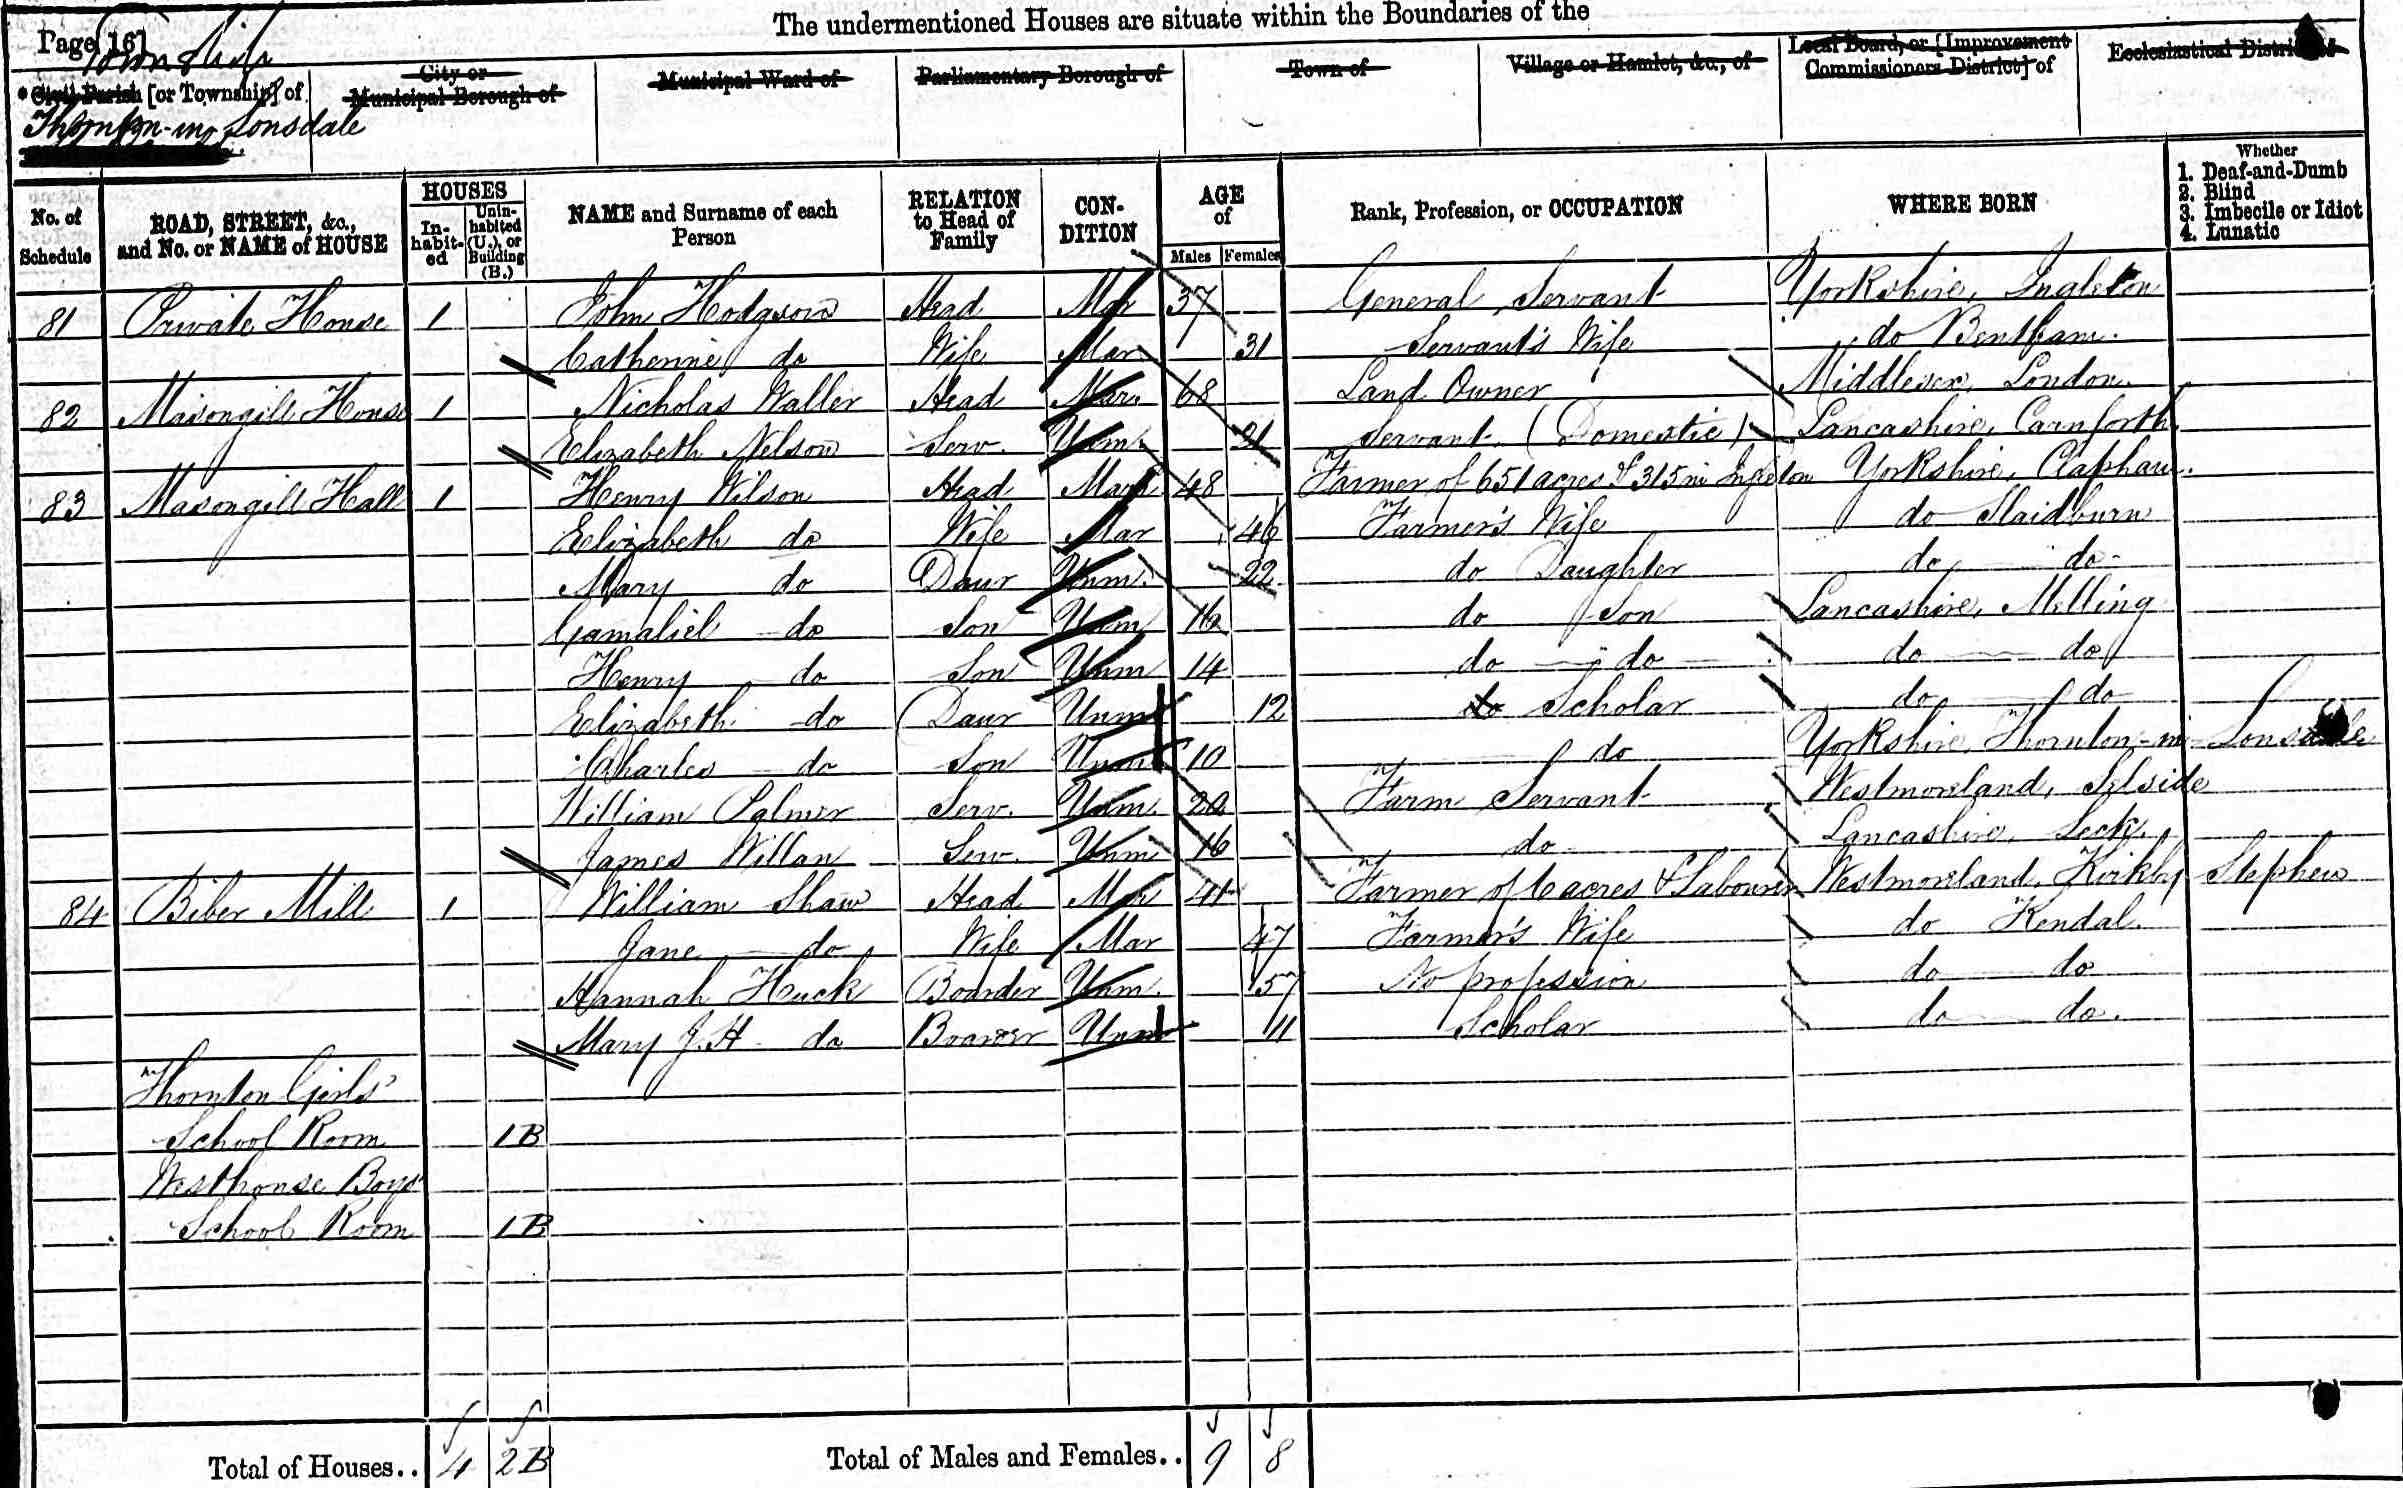 The undermentioned Houses are situate within the Boundaries of the
Page 16]
Township
Civil Parish [or Township] of
City or Municipal Borough of
Municipal Ward of
Parliamentary Borough of
Town of
Village or Hamlet, &c., of
Local Board, or [Improvement Commissioners District] of
Ecclesiastical District of
Thornton-in-Lonsdale
No. of Schedule
ROAD, STREET, &c., and No. or NAME of HOUSE
HOUSES
In-habit-ed
Unin-habited (U.), or Building (B.)
NAME and Surname of each Person
RELATION to Head of Family
CON-DITION
AGE of
Males
Females
Rank, Profession, or OCCUPATION
WHERE BORN
Whether
1. Deaf-and-Dumb
2. Blind
3. Imbecile or Idiot
4. Lunatic
81 Private House 1 John Hodgson Head Mar 37 General Servant Yorkshire, Ingleton
Catherine do Wife Mar 31 Servant's Wife do Bentham.
82 Masongill House 1 Nicholas Waller Head Mar. 68 Land Owner Middlesex, London.
Elizabeth Nelson Serv. Unm. 21 Servant (Domestic) Lancashire, Carnforth.
83 Masongill Hall 1 Henry Wilson Head Mar 48 Farmer of 651 acres & 315 in Ingleton Yorkshire, Clapham.
Elizabeth do Wife Mar 46 Farmer's Wife do Slaidburn
Mary do Daur Unm. 22 do Daughter do do
Gamaliel do Son Unm 16 do Son Lancashire, Melling
Henry do Son Unm 14 do do do do
Elizabeth do Daur Unm 12 do Scholar do do
Charles do Son Unm 10 do Yorkshire, Thornton-in-Lonsdale
William Palmer Serv. Unm. 20 Farm Servant Westmoreland, Selside
James Willan Serv. Unm 16 do Lancashire, Leck.
84 Biber Mill 1 William Shaw Head Mar 41 Farmer of 6 acres & Labourer Westmoreland, Kirkby Stephen
Jane do Wife Mar 47 Farmer's Wife do Kendal.
Hannah Huck Boarder Unm. 57 No profession do do
Mary J. H. do Boarder Unm 11 Scholar do do.
Thornton Girls'
School Room 1B
Westhouse Boys'
School Room 1B
Total of Houses.. 4 2B Total of Males and Females.. 9 8